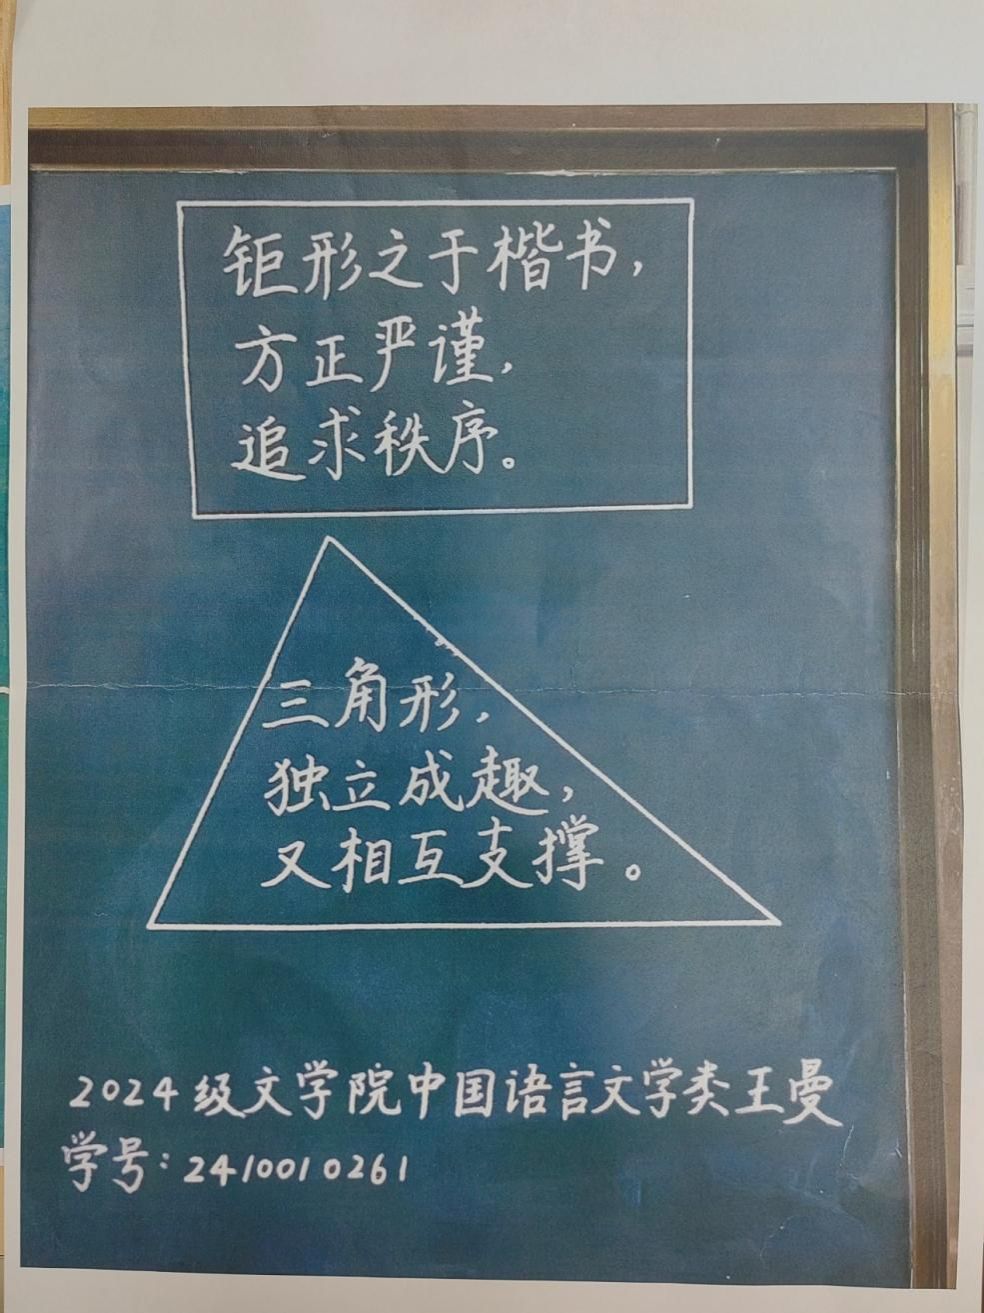 钜形之于楷书，
方正严谨，
追求秩序。
三角形，
独立成趣，
又相互支撑。
2024级文学院中国语言文学类王曼
学号：2410010261